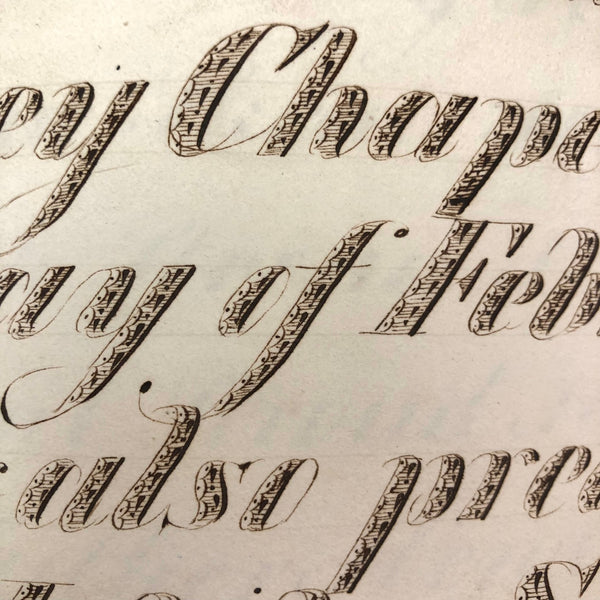 ey Chape
ay of Feb
also pre